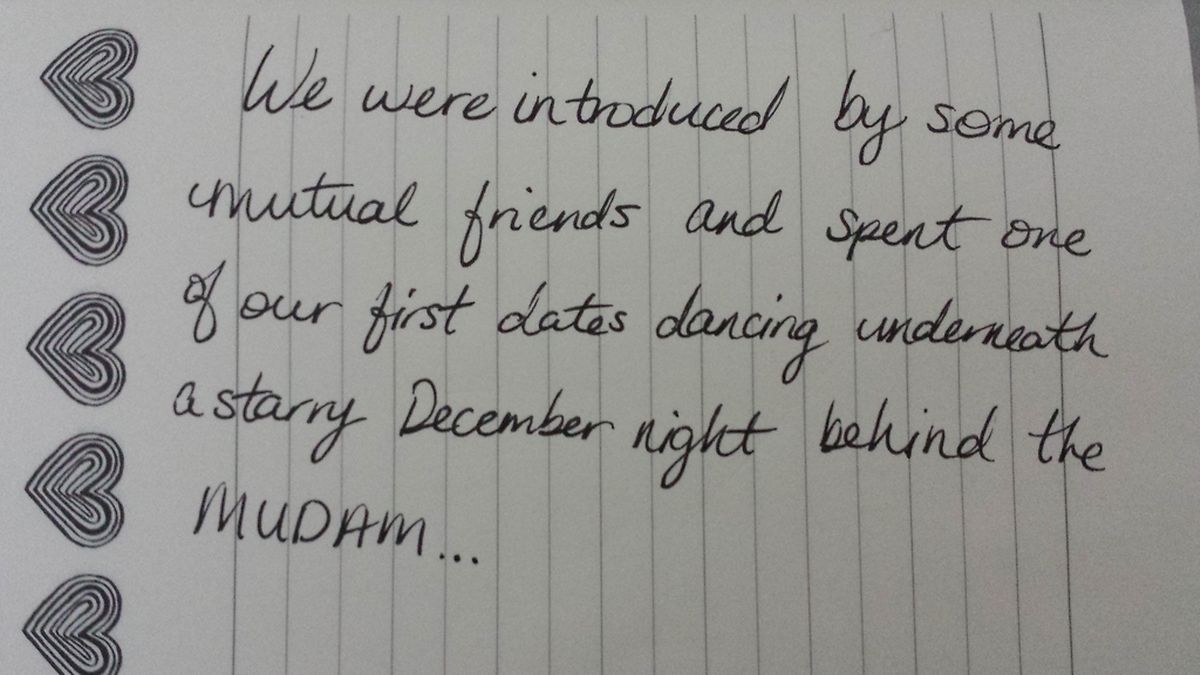 We were introduced by some
mutual friends and spent one
of our first dates dancing underneath
a starry December night behind the
MUDAM...